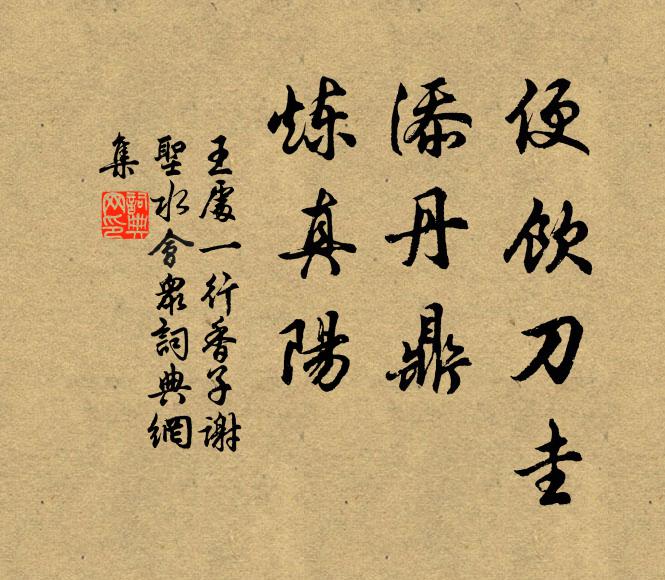 便飲刀圭
添丹鼎
炼真陽
王處一行香子謝
聖水會眾詞典網
集
詞典網印